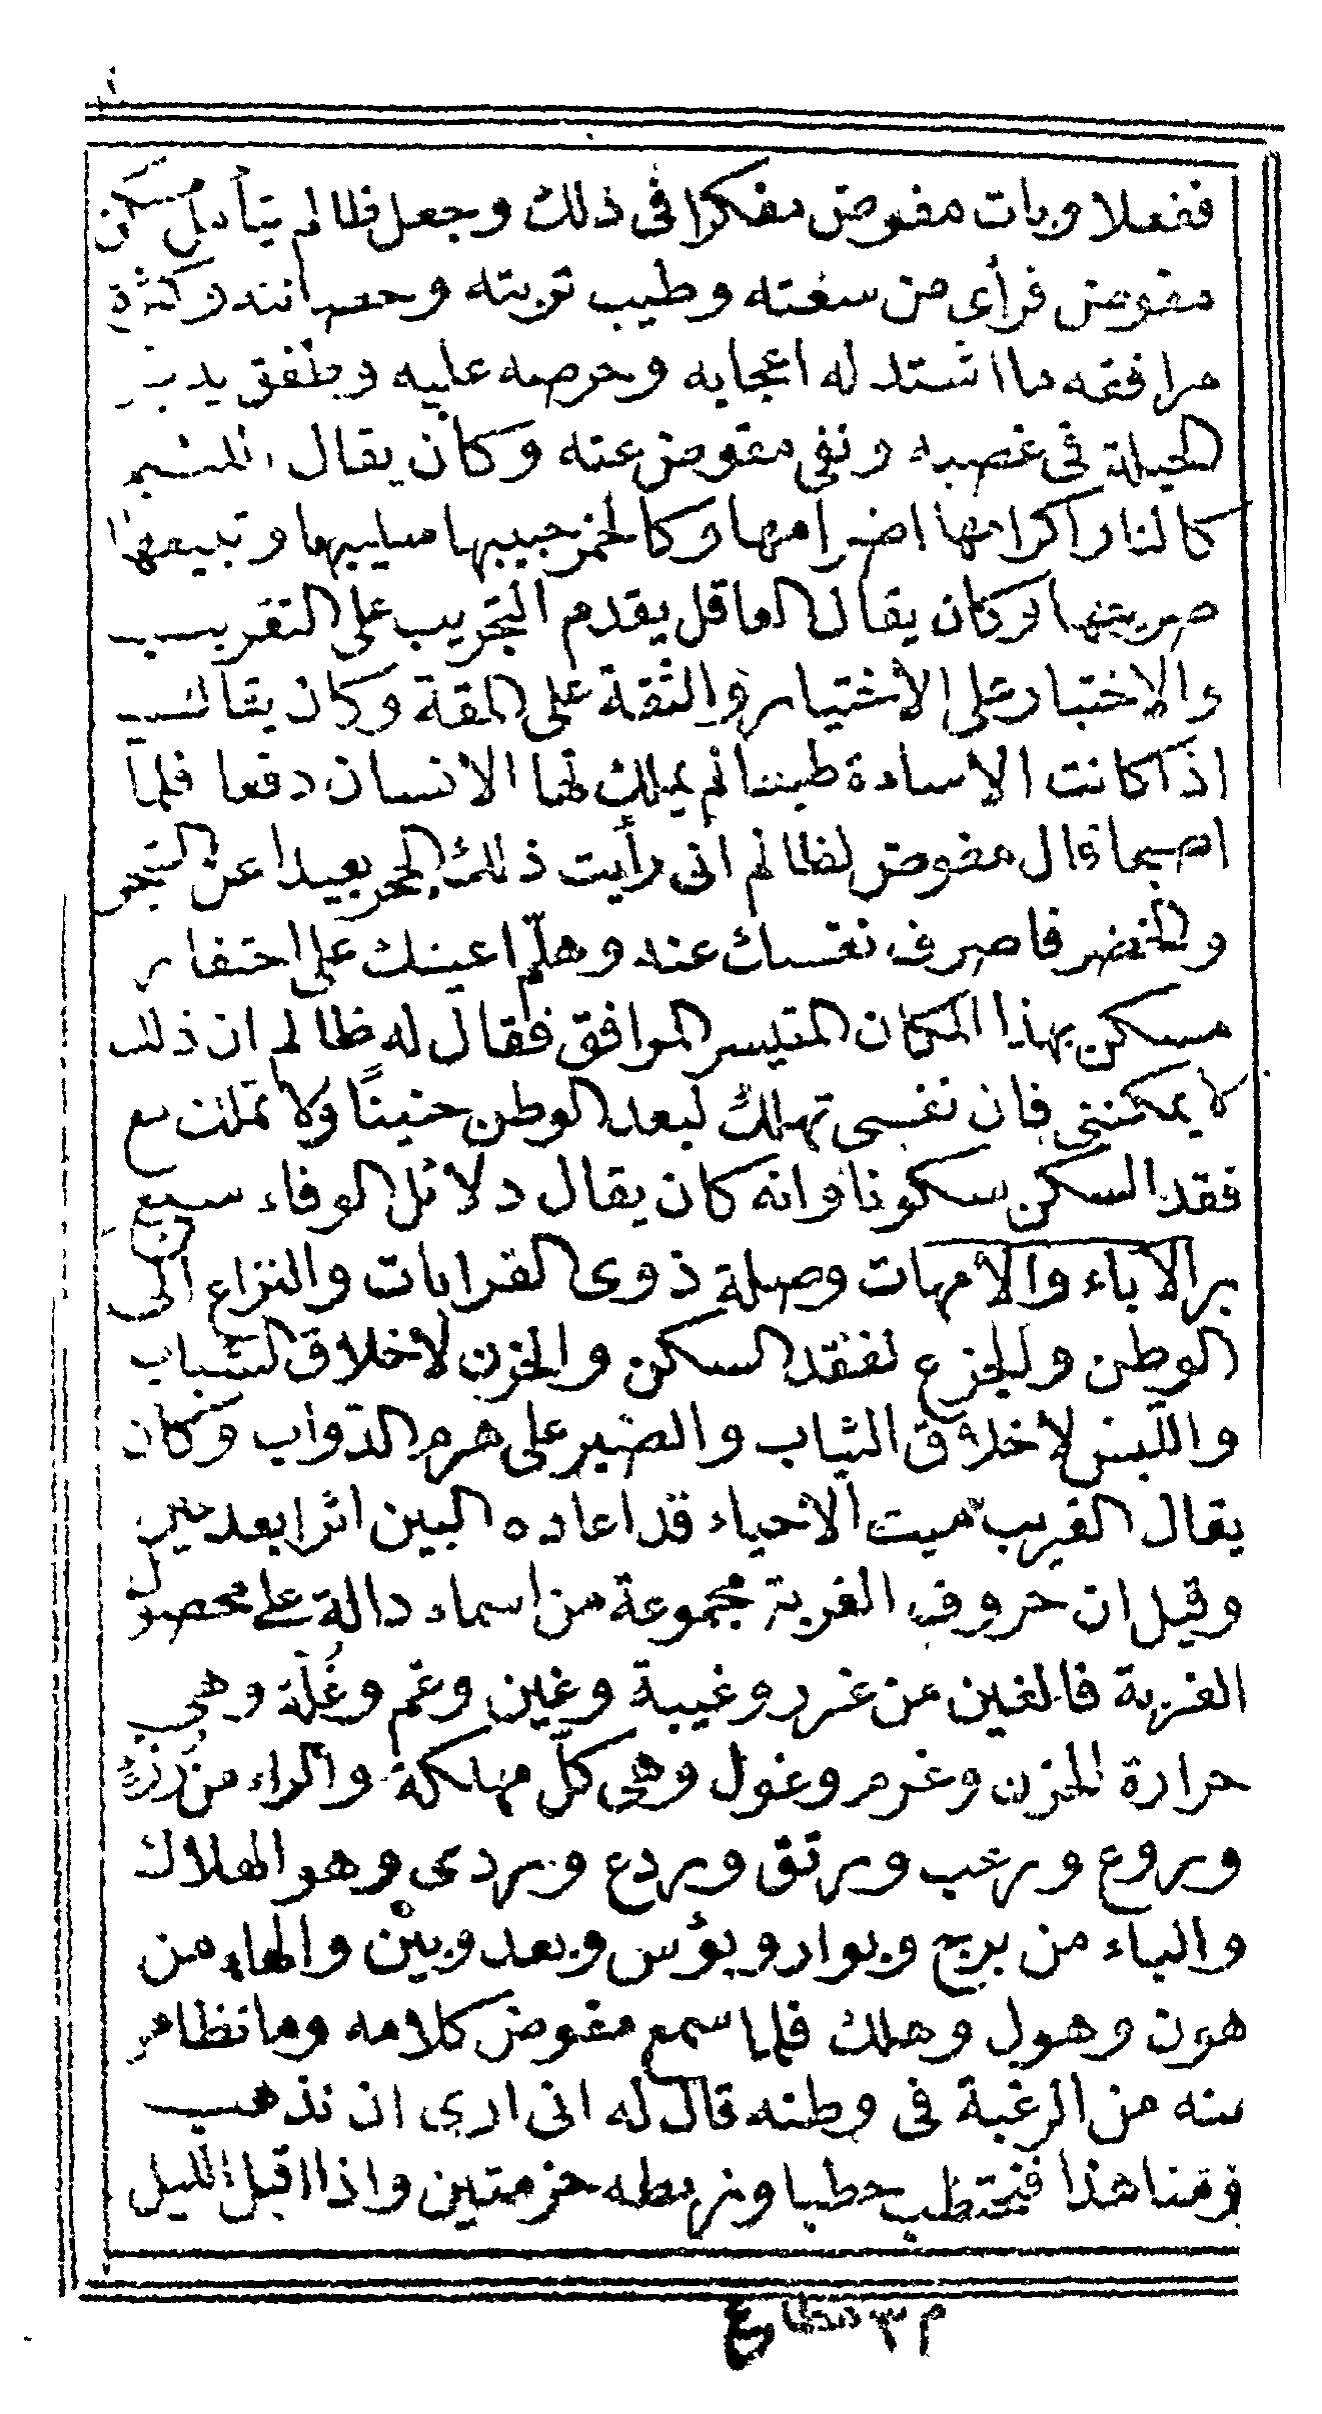 ففعلا وبات مفوض مفكرا فى ذلك وجعل ظالم يتأمل مسكن
مفوض فرأى من سعته وطيب تربته وحصانته وكثرة
مرافقه ما اشتد له اعجابه وحرصه عليه وطفق يدبر
الحيلة فى غصبه ونفى مفوض عنه وكان يقال
كالنار اكرامها اضرامها وكالخمر حبيبها سليبها وتبيعها
صريعها وكان يقال العاقل يقدم التجريب على التقريب
والاختبار على الاختيار والثقة على المقة وكان يقال
اذا كانت الاساءة طبعا لم يملك لها الانسان دفعا فلما
اصبحا قال مفوض لظالم انى رأيت ذلك الجحر بعيدا عن الشجر
والخضر فاصرف نفسك عنه وهلم اعينك على احتفار
مسكن بهذا المكان المتيسر الموافق فقال له ظالم ان ذلك
لا يمكننى فان نفسى تهلك لبعد الوطن حنينًا ولا تملك مع
فقد السكن سكونا وانه كان يقال دلائل الوفاء سبع
بر الآباء والامهات وصلة ذوى القرابات والنزاع الى
الوطن والجزع لفقد السكن والحزن لاخلاق الشباب
واللبس لاخلاق الثياب والصبر على هرم الدواب وكان
يقال الغريب ميت الاحياء قد اعاده البين اثرا بعد عين
وقيل ان حروف الغربة مجموعة من اسماء دالة على محصول
الغربة فالغين من غرر وغيبة وغين وغم وغُلّة وهى
حرارة الحزن وغرم وغول وهى كلّ مهلكة والراء من رُزْء
وروع ورعب ورتق وردع وردى وهو الهلاك
والباء من برح وبوار وبؤس وبعد وبين والهاء من
هون وهول وهلك فلما سمع مفوض كلامه وما تظاهر
منه من الرغبة فى وطنه قال له انى ارى ان نذهب
يومنا هذا فنحتطب حطبا ونربطه حزمتين واذا اقبل الليل
م ٣ مطاع